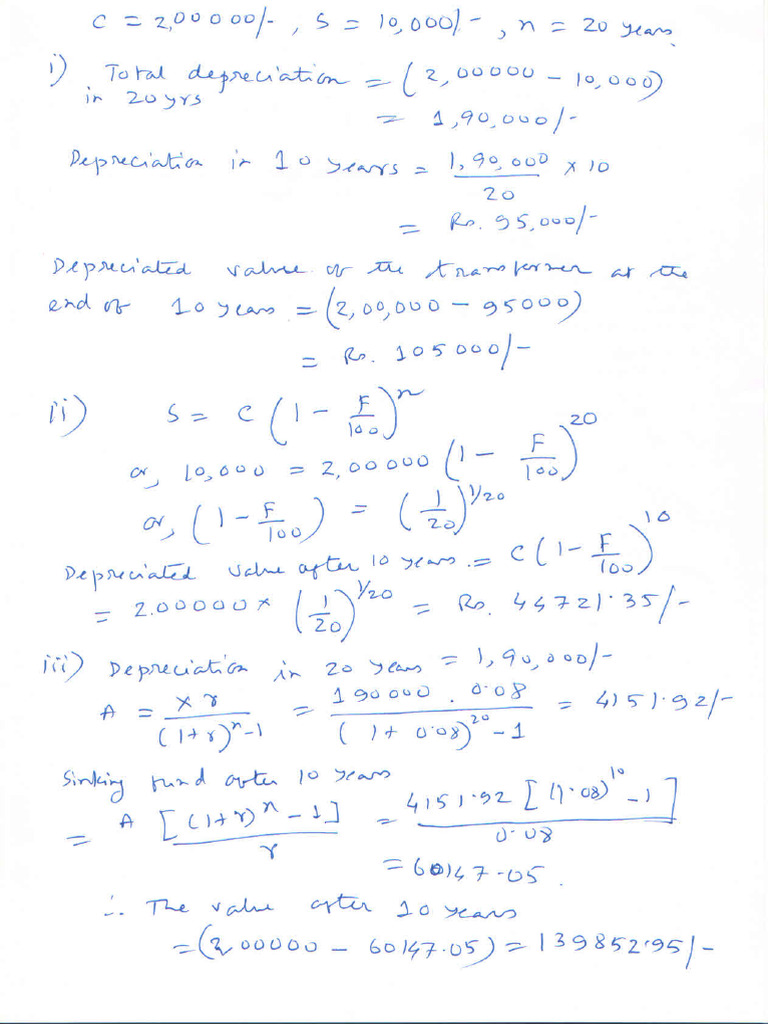 C = 2,00000/-, S = 10,000/-, n = 20 years.
i) Total depreciation = (2,00000 - 10,000)
in 20yrs
= 1,90,000/-
Depreciation in 10 years = 1,90,000/20 × 10
= Rs. 95,000/-
Depreciated value of the transformer at the
end of 10 years = (2,00,000 - 95000)
= Rs. 105000/-
ii) S = C (1 - F/100)^n
or, 10,000 = 2,00000 (1 - F/100)^20
or, (1 - F/100) = (1/20)^1/20
Depreciated value after 10 years. = C (1 - F/100)^10
= 2.00000 × (1/20)^1/20 = Rs. 44721.35/-
iii) Depreciation in 20 years = 1,90,000/-
A = x r/(1+r)^n-1 = 190000 . 0.08/(1+0.08)^20 - 1 = 4151.92/-
Sinking fund after 10 years
= A [(1+r)^n - 1]/r = 4151.92 [(1.08)^10 - 1]/0.08
= 60147.05.
∴ The value after 10 years
= (200000 - 60147.05) = 139852.95/-